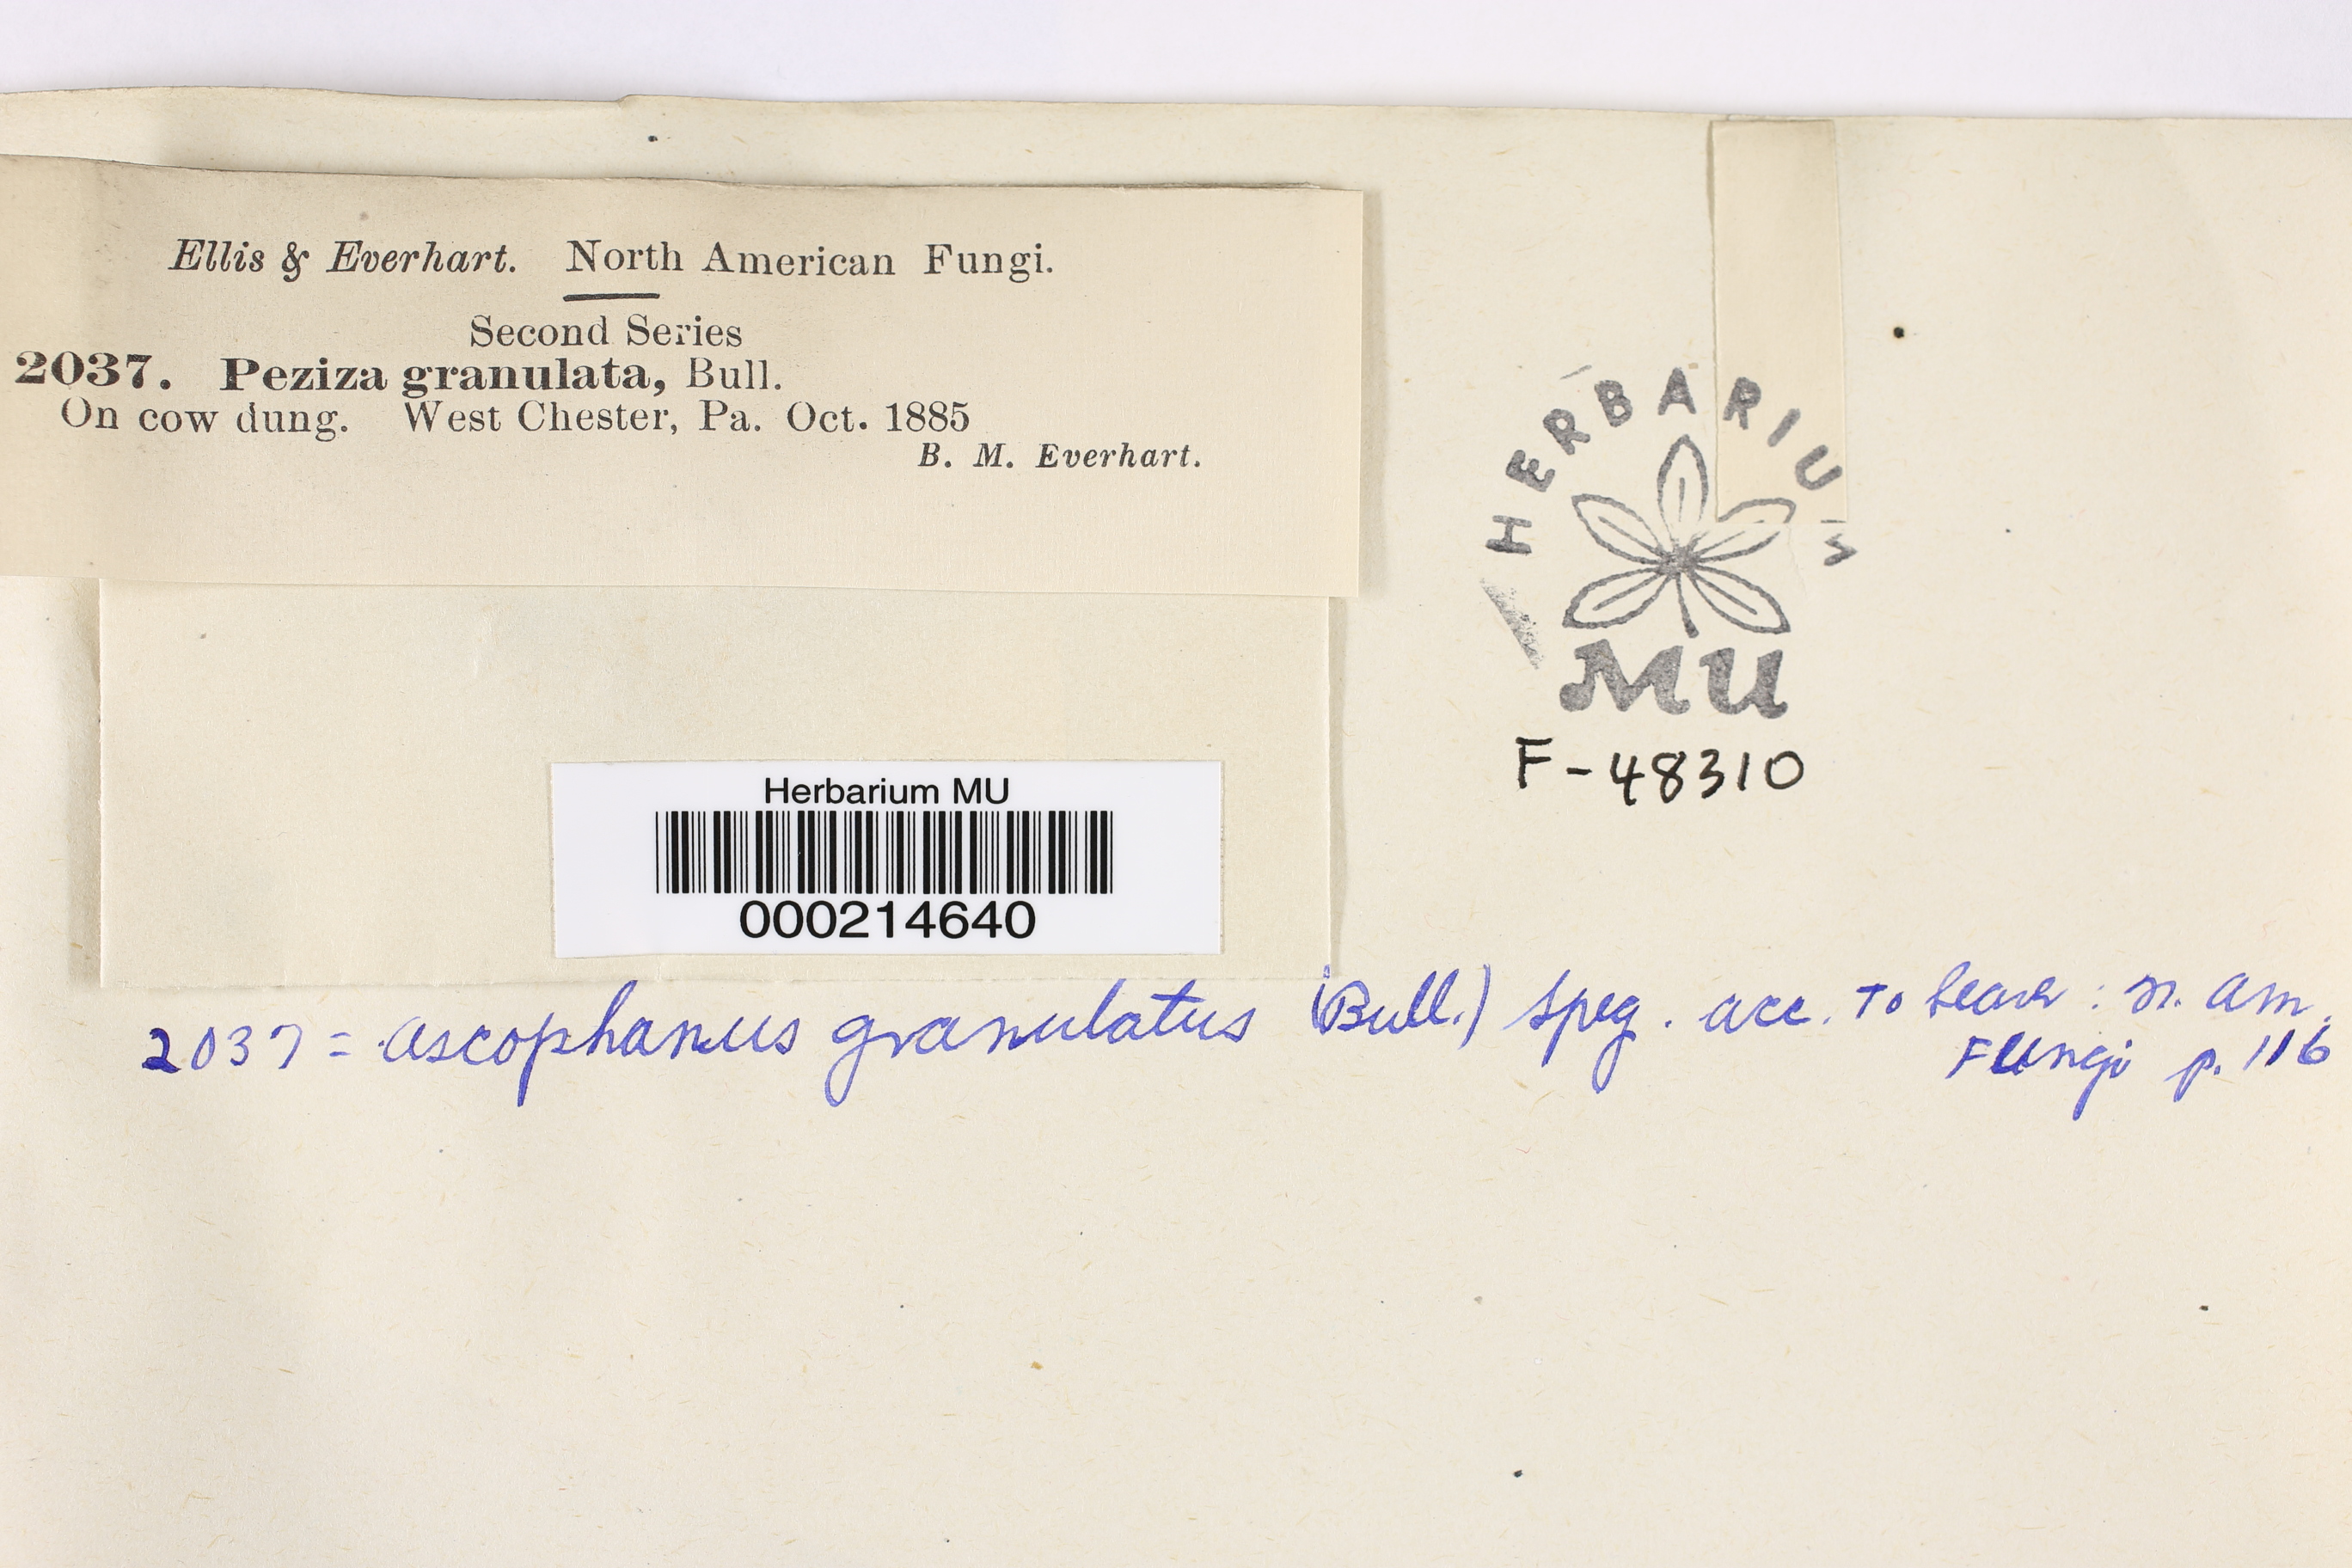 Ellis & Everhart. North American Fungi.
Second Series
2037. Peziza granulata, Bull.
On cow dung. West Chester, Pa. Oct. 1885
B. M. Everhart.
HERBARIUM
MU
F-48310
Herbarium MU
000214640
2037 = Ascophanus granulatus (Bull.) Speg. acc. To Seaver: N. Am.
Fungi p. 116